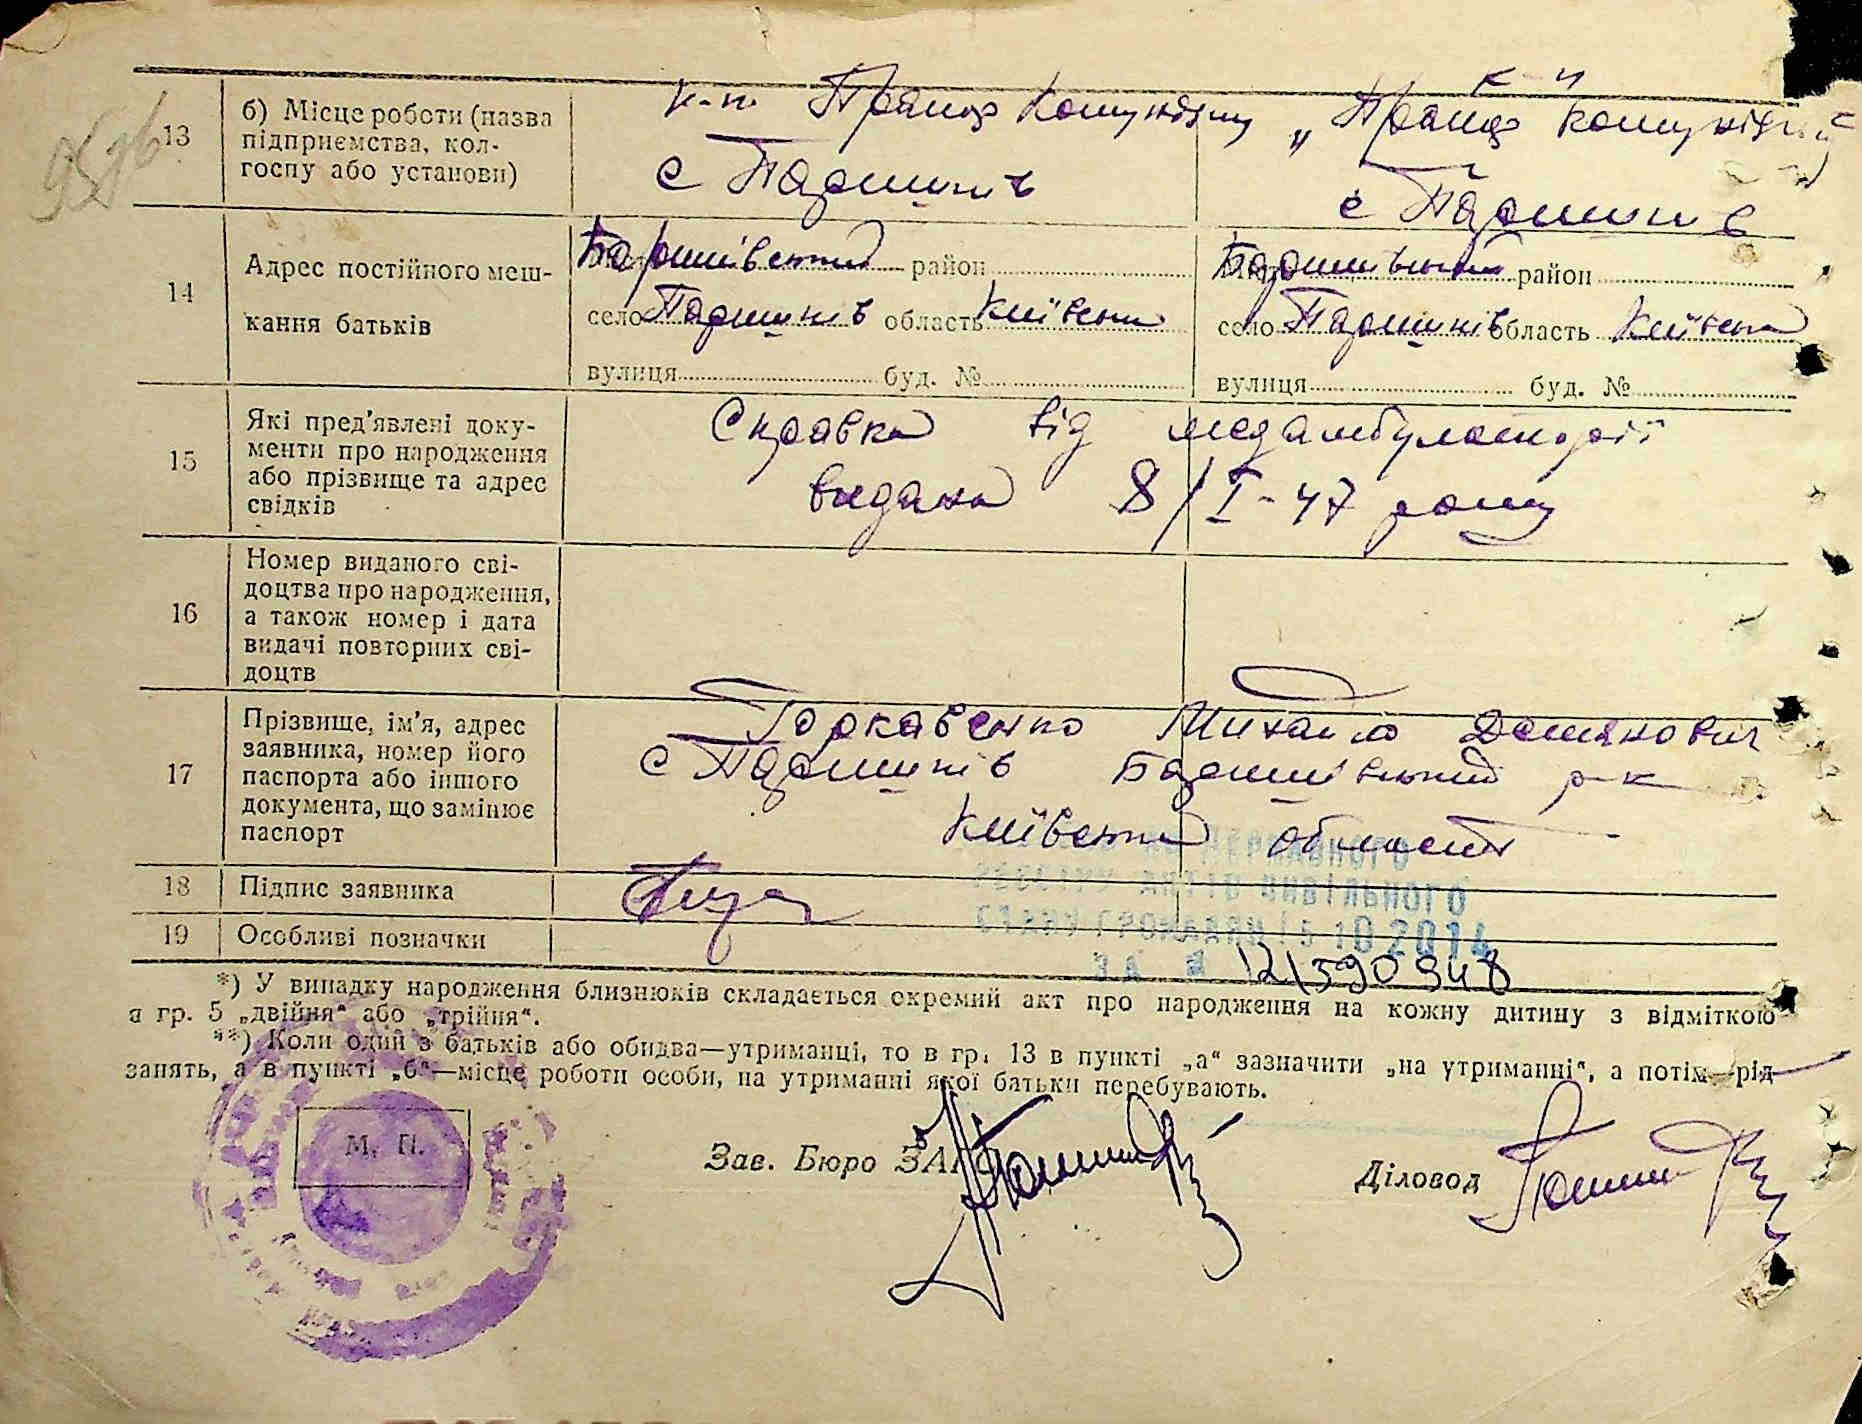 13
б) Місце роботи (назва
підприємства, кол-
госпу або установи)
к-п. Праця Комунізму
с Паришків
к-п
„Праця комунізму
с Паришків
14
Адрес постійного меш-
кання батьків
Баришівський район
село Паришків область Київська
вулиця буд. №
Баришівський район
село Паришків область Київська
вулиця буд. №
15
Які пред'явлені доку-
менти про народження
або прізвище та адрес
свідків
Справка від медамбулаторії
видана 8/I-47 року
16
Номер виданого сві-
доцтва про народження,
а також номер і дата
видачі повторних сві-
доцтв
17
Прізвище, ім'я, адрес
заявника, номер його
паспорта або іншого
документа, що замінює
паспорт
Торкавенко Михайло Демянович
с Паришків Баришівський р-к
Київська область
18
Підпис заявника
19
Особливі позначки
ДЕРЖАВНОГО
РЕЄСТРУ АКТІВ ЦИВІЛЬНОГО
СТАНУ ГРОМАДЯН 15 10 2014
ЗА №
*) У випадку народження близнюків складається окремий акт про народження на кожну дитину з відміткою
в гр. 5 „двійня“ або „трійня“.
**) Коли один з батьків або обидва—утриманці, то в гр. 13 в пункті „а“ зазначити „на утриманні“, а потім—рід
занять, а в пункті „б“—місце роботи особи, на утриманні якої батьки перебувають.
М. П.
Зав. Бюро ЗАГС
Діловод